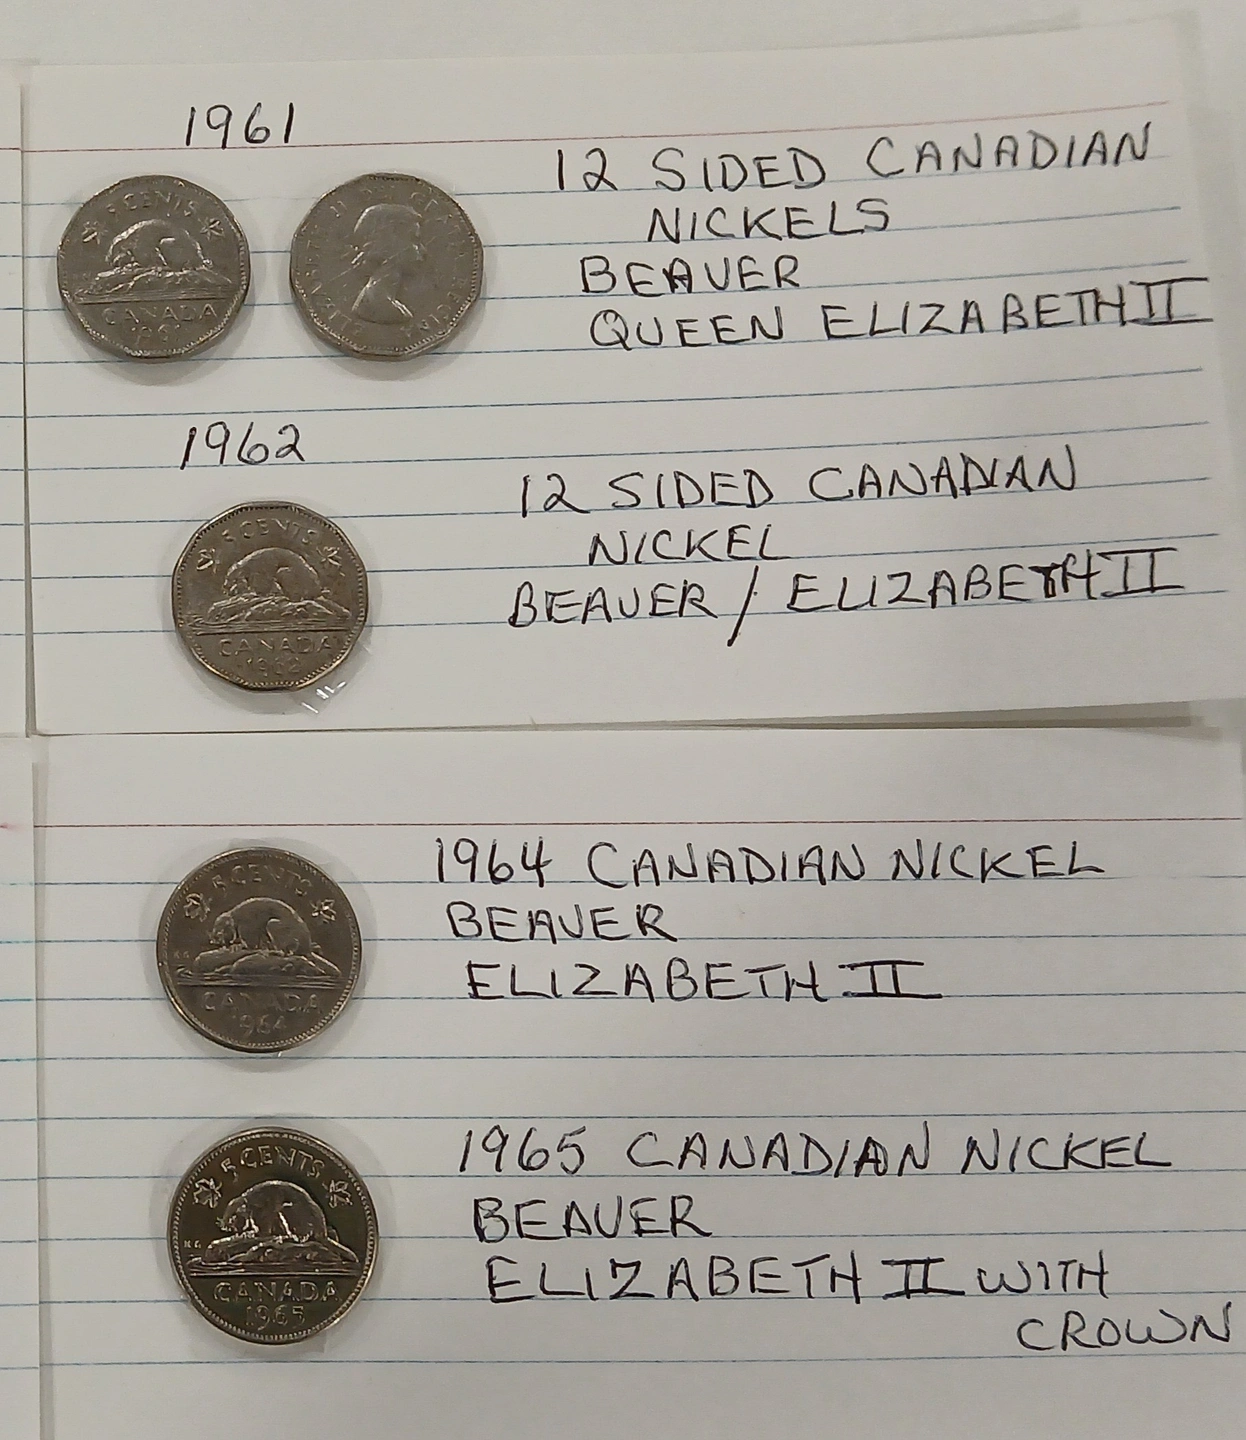 1961
5 CENTS
CANADA
ELIZABETH II
REGINA
12 SIDED CANADIAN
NICKELS
BEAVER
QUEEN ELIZABETH II
1962
5 CENTS
CANADA
1962
12 SIDED CANADIAN
NICKEL
BEAVER / ELIZABETH II
5 CENTS
CANADA
1964
1964 CANADIAN NICKEL
BEAVER
ELIZABETH II
5 CENTS
CANADA
1965
1965 CANADIAN NICKEL
BEAVER
ELIZABETH II WITH
CROWN